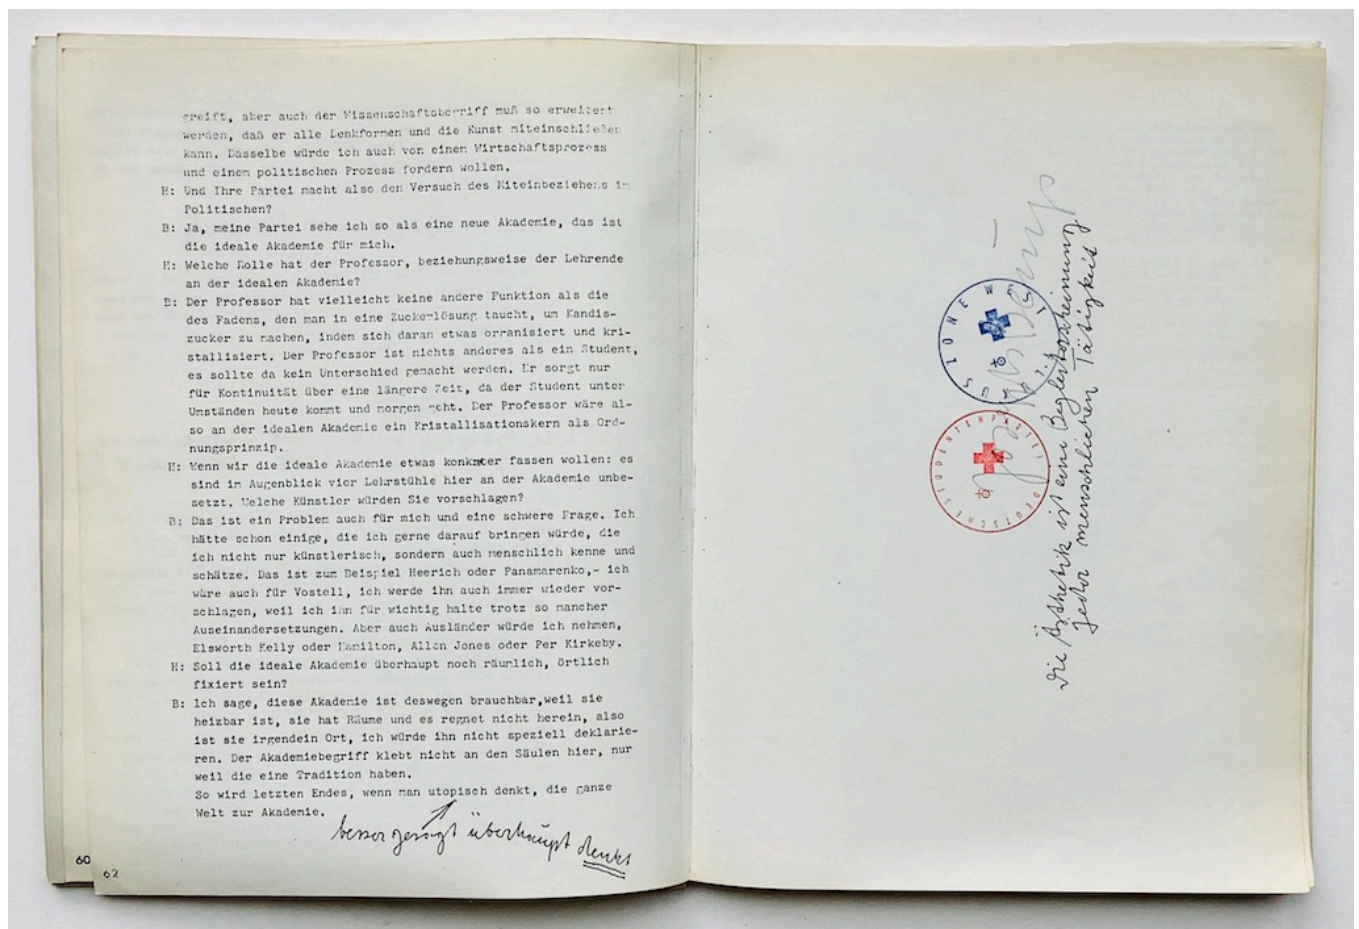 greift, aber auch der Wissenschaftsbegriff muß so erweitert
werden, daß er alle Denkformen und die Kunst miteinschließen
kann. Dasselbe würde ich auch von einem Wirtschaftsprozess
und einem politischen Prozess fordern wollen.
H: Und Ihre Partei macht also den Versuch des Miteinbeziehens im
Politischen?
B: Ja, meine Partei sehe ich so als eine neue Akademie, das ist
die ideale Akademie für mich.
H: Welche Rolle hat der Professor, beziehungsweise der Lehrende
an der idealen Akademie?
B: Der Professor hat vielleicht keine andere Funktion als die
des Fadens, den man in eine Zuckerlösung taucht, um Kandis-
zucker zu machen, indem sich daran etwas organisiert und kri-
stallisiert. Der Professor ist nichts anderes als ein Student,
es sollte da kein Unterschied gemacht werden. Er sorgt nur
für Kontinuität über eine längere Zeit, da der Student unter
Umständen heute kommt und morgen geht. Der Professor wäre al-
so an der idealen Akademie ein Kristallisationskern als Ord-
nungsprinzip.
H: Wenn wir die ideale Akademie etwas konkreter fassen wollen: es
sind im Augenblick vier Lehrstühle hier an der Akademie unbe-
setzt. Welche Künstler würden Sie vorschlagen?
B: Das ist ein Problem auch für mich und eine schwere Frage. Ich
hätte schon einige, die ich gerne darauf bringen würde, die
ich nicht nur künstlerisch, sondern auch menschlich kenne und
schätze. Das ist zum Beispiel Heerich oder Panamarenko,- ich
wäre auch für Vostell, ich werde ihn auch immer wieder vor-
schlagen, weil ich ihn für wichtig halte trotz so mancher
Auseinandersetzungen. Aber auch Ausländer würde ich nehmen,
Elsworth Kelly oder Hamilton, Allen Jones oder Per Kirkeby.
H: Soll die ideale Akademie überhaupt noch räumlich, örtlich
fixiert sein?
B: Ich sage, diese Akademie ist deswegen brauchbar,weil sie
heizbar ist, sie hat Räume und es regnet nicht herein, also
ist sie irgendein Ort, ich würde ihn nicht speziell deklarie-
ren. Der Akademiebegriff klebt nicht an den Säulen hier, nur
weil die eine Tradition haben.
So wird letzten Endes, wenn man utopisch denkt, die ganze
Welt zur Akademie.
besser gesagt überhaupt denkt
60
62
DEUTSCHE STUDENTENPARTEI
Joseph Beuys
die Ästhetik ist eine Begleiterscheinung
jeder menschlichen Tätigkeit